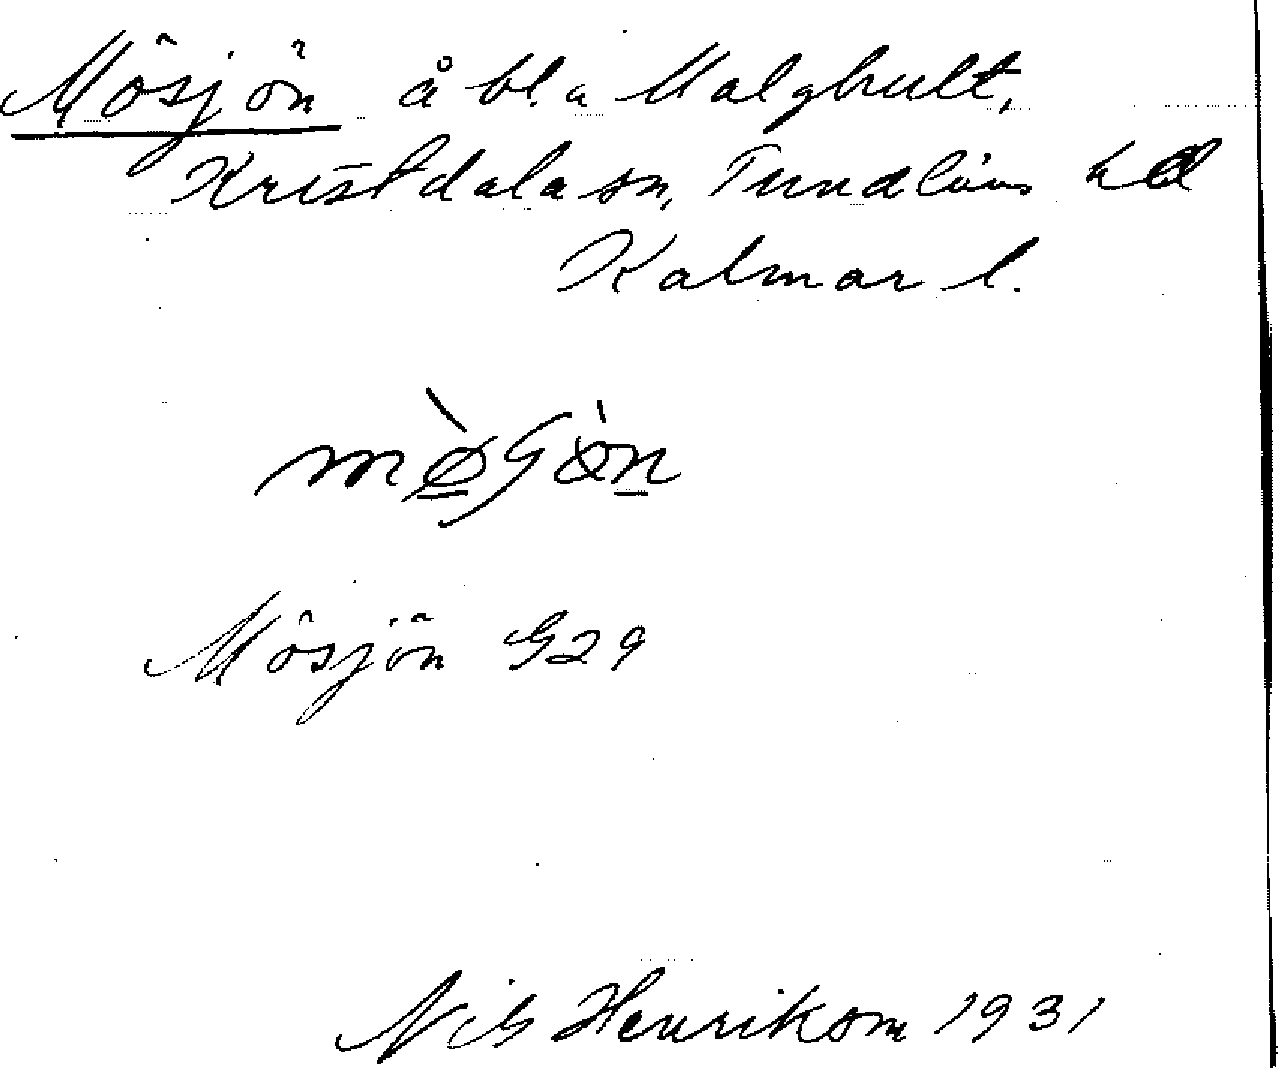 Mösjön å bl. a Malghult,
Kristdala sn, Tunaläns hd
Kalmar l.
mø̀Gòn
Mösjön G29
Nils Henrikson 1931